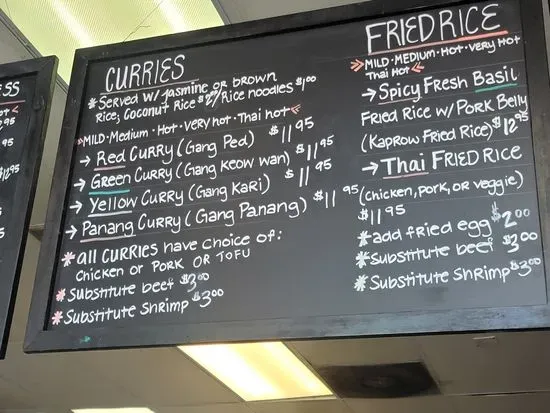 CURRIES
* Served w/ Jasmine or brown
Rice, Coconut Rice $2/Rice noodles $1.00
»Mild·Medium·Hot·Very hot·Thai hot«
→ Red Curry (Gang Ped) $11.95
→ Green Curry (Gang Keow wan) $11.95
→ Yellow Curry (Gang Kari) $11.95
→ Panang Curry (Gang Panang) $11.95
* all Curries have choice of:
Chicken or Pork or Tofu
* Substitute beef $3.00
* Substitute Shrimp $3.00
FRIED RICE
» Mild·Medium·Hot·Very Hot
Thai Hot «
→ Spicy Fresh Basil
Fried Rice w/ Pork Belly
(Kaprow Fried Rice) $12.95
→ Thai Fried Rice
(chicken, pork, or veggie)
$11.95
* add fried egg $2.00
* Substitute beef $3.00
* Substitute Shrimp $3.00